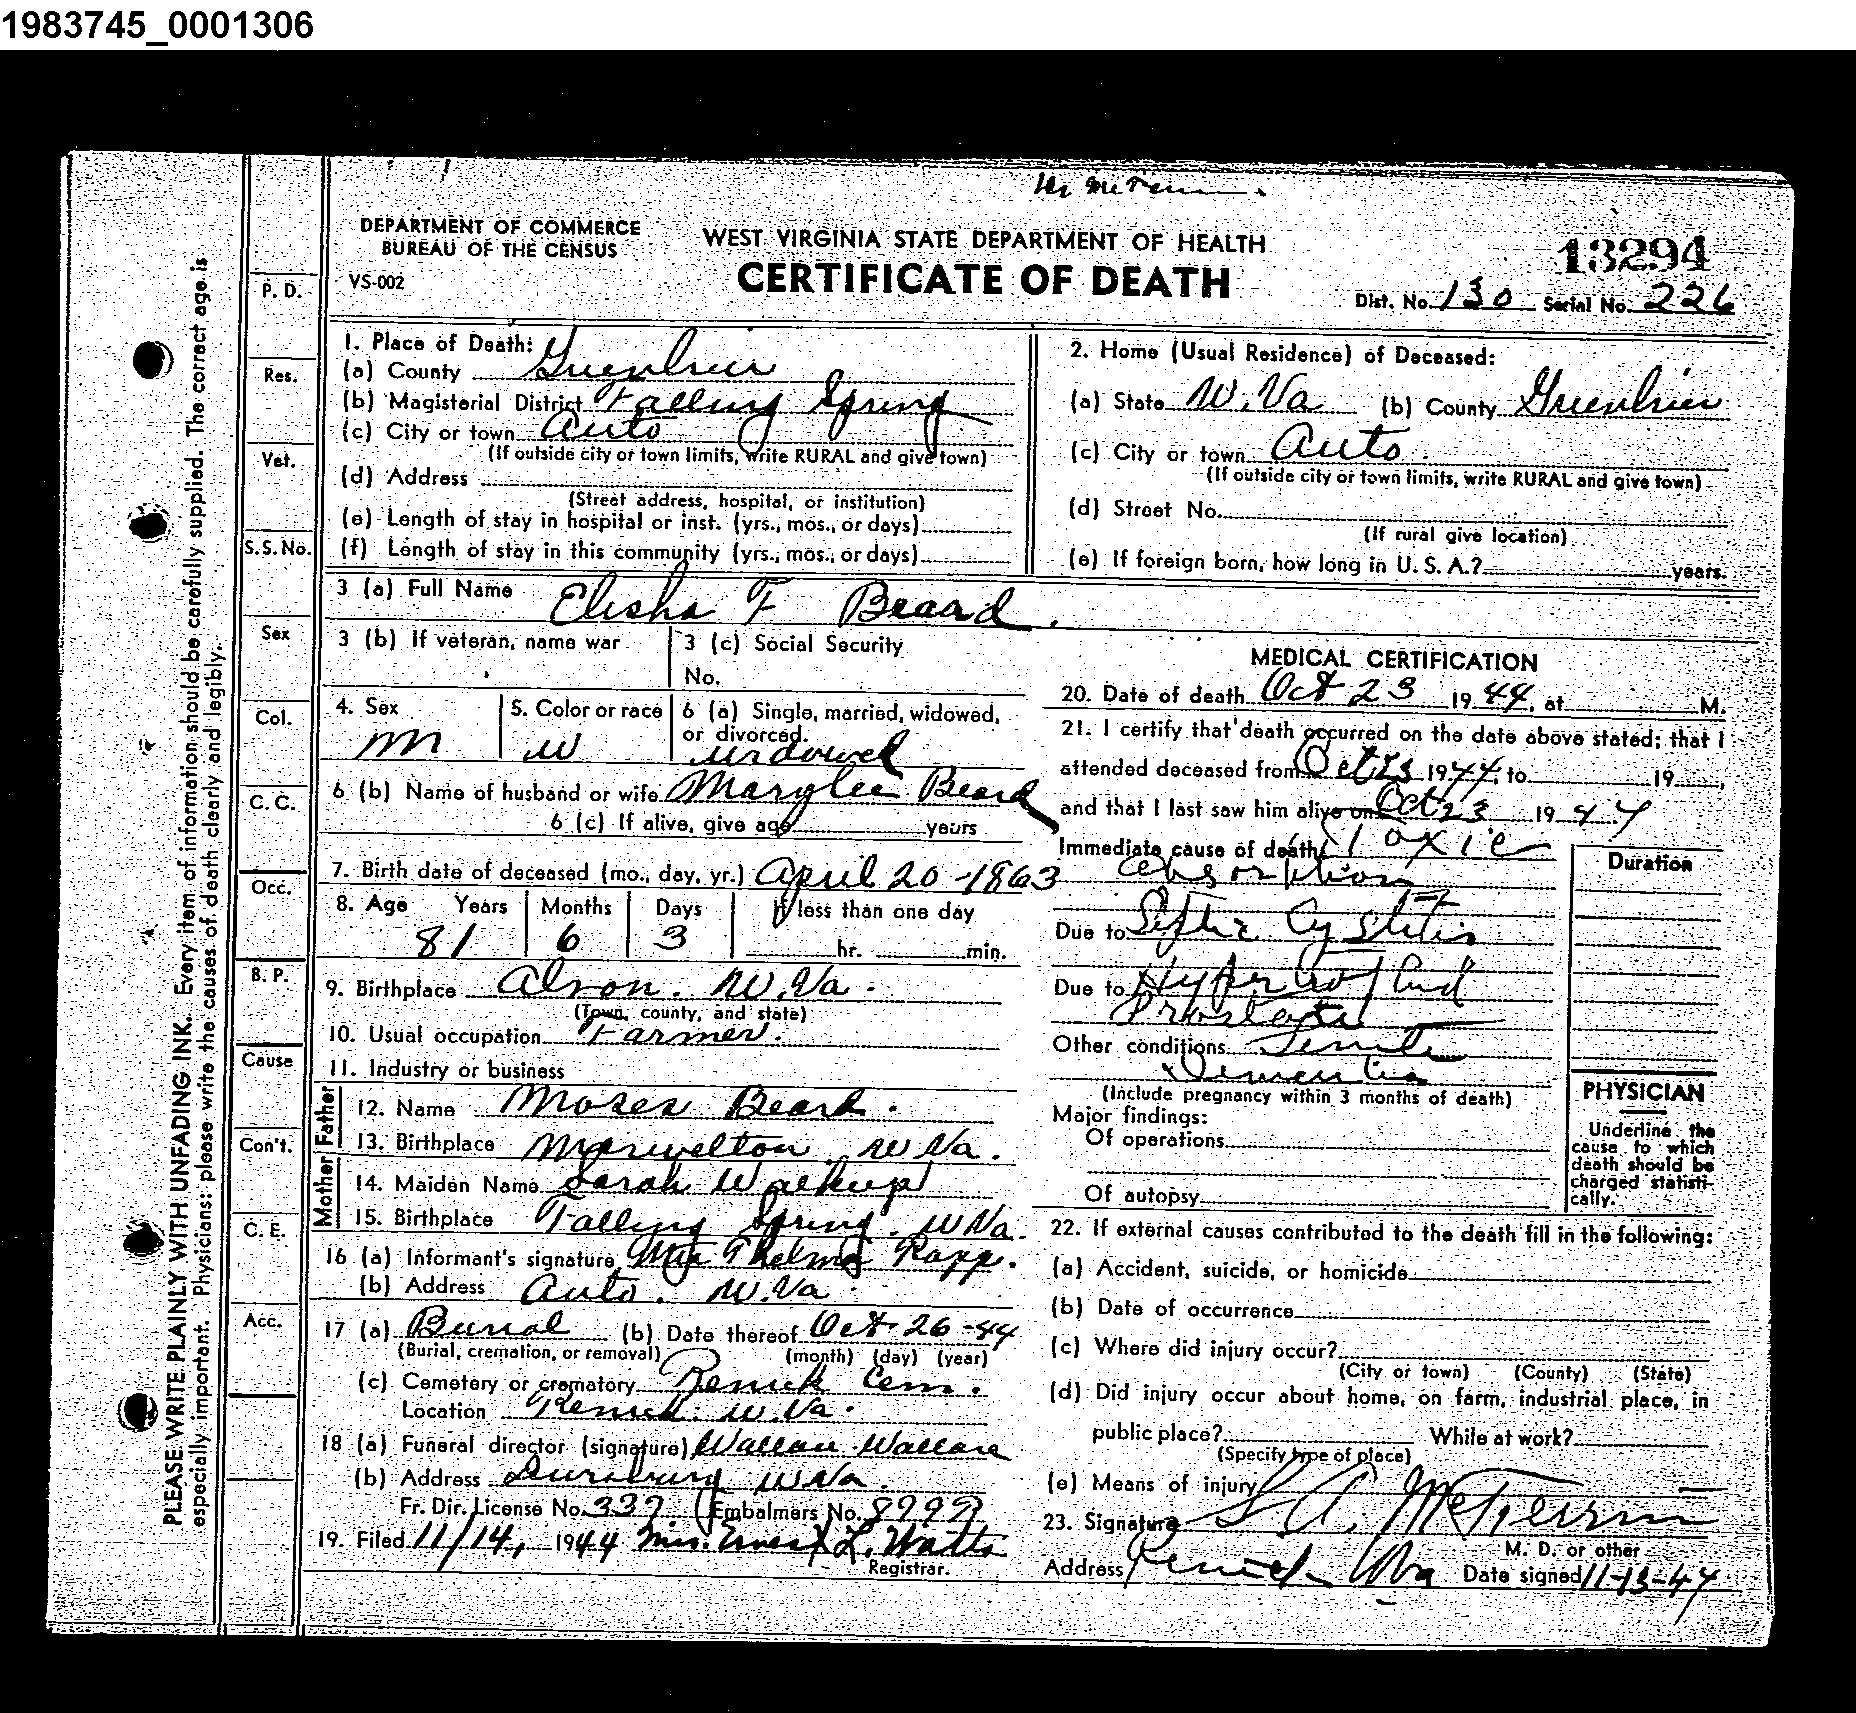 1983745_0001306
DEPARTMENT OF COMMERCE
BUREAU OF THE CENSUS
VS-002
WEST VIRGINIA STATE DEPARTMENT OF HEALTH
CERTIFICATE OF DEATH
13294
Dist. No. 130 Serial No. 226
PLEASE WRITE PLAINLY WITH UNFADING INK. Every item of information should be carefully supplied. The correct age is
especially important. Physicians: please write the causes of death clearly and legibly.
P. D.
Res.
Vet.
S.S.No.
Sex
Col.
C. C.
Occ.
B. P.
Cause
Con't.
C. E.
Acc.
1. Place of Death:
(a) County Greenbrier
(b) Magisterial District Falling Spring
(c) City or town Auto
(If outside city or town limits, write RURAL and give town)
(d) Address
(Street address, hospital, or institution)
(e) Length of stay in hospital or inst. (yrs., mos., or days)
(f) Length of stay in this community (yrs., mos., or days)
2. Home (Usual Residence) of Deceased:
(a) State W.Va (b) County Greenbrier
(c) City or town Auto.
(If outside city or town limits, write RURAL and give town)
(d) Street No.
(If rural give location)
(e) If foreign born, how long in U. S. A.? years.
3 (a) Full Name Elisha F Beard.
3 (b) If veteran, name war
3 (c) Social Security
No.
4. Sex M
5. Color or race W
6 (a) Single, married, widowed,
or divorced. widowed
6 (b) Name of husband or wife Marylee Beard
6 (c) If alive, give age years
7. Birth date of deceased (mo., day, yr.) April 20-1863
8. Age Years Months Days If less than one day
81 6 3 hr. min.
9. Birthplace Alvon. W.Va.
(Town, county, and state)
10. Usual occupation Farmer.
11. Industry or business
Father
12. Name Moses Beard.
13. Birthplace W Va.
Mother
14. Maiden Name Sarah Walkup
15. Birthplace Falling Spring. W Va.
16 (a) Informant's signature Mrs Thelma Rapp.
(b) Address Auto. W.Va.
17 (a) Burial (b) Date thereof Oct-26-44
(Burial, cremation, or removal) (month) (day) (year)
(c) Cemetery or crematory Renick Cem.
Location Renick. W.Va.
18 (a) Funeral director (signature) Wallace
(b) Address W Va.
Fr. Dir. License No. 337 Embalmers No.
19. Filed 11/14, 1944 Mrs. Ernest L. Watts
Registrar.
MEDICAL CERTIFICATION
20. Date of death Oct 23 1944, at M.
21. I certify that death occurred on the date above stated; that I
attended deceased from Oct 23 1944, to 19 ,
and that I last saw him alive on Oct 23 1944
Immediate cause of death Toxic
absorption
Due to Septic Cystitis
Due to Hypertrophied
Prostate
Other conditions Senile
Dementia
(Include pregnancy within 3 months of death)
Major findings:
Of operations
Of autopsy
Duration
PHYSICIAN
Underline the
cause to which
death should be
charged statisti-
cally.
22. If external causes contributed to the death fill in the following:
(a) Accident, suicide, or homicide
(b) Date of occurrence
(c) Where did injury occur?
(City or town) (County) (State)
(d) Did injury occur about home, on farm, industrial place, in
public place? While at work?
(Specify type of place)
(e) Means of injury
23. Signature McFerrin
M. D. or other
Address Renick WVa Date signed 11-13-44